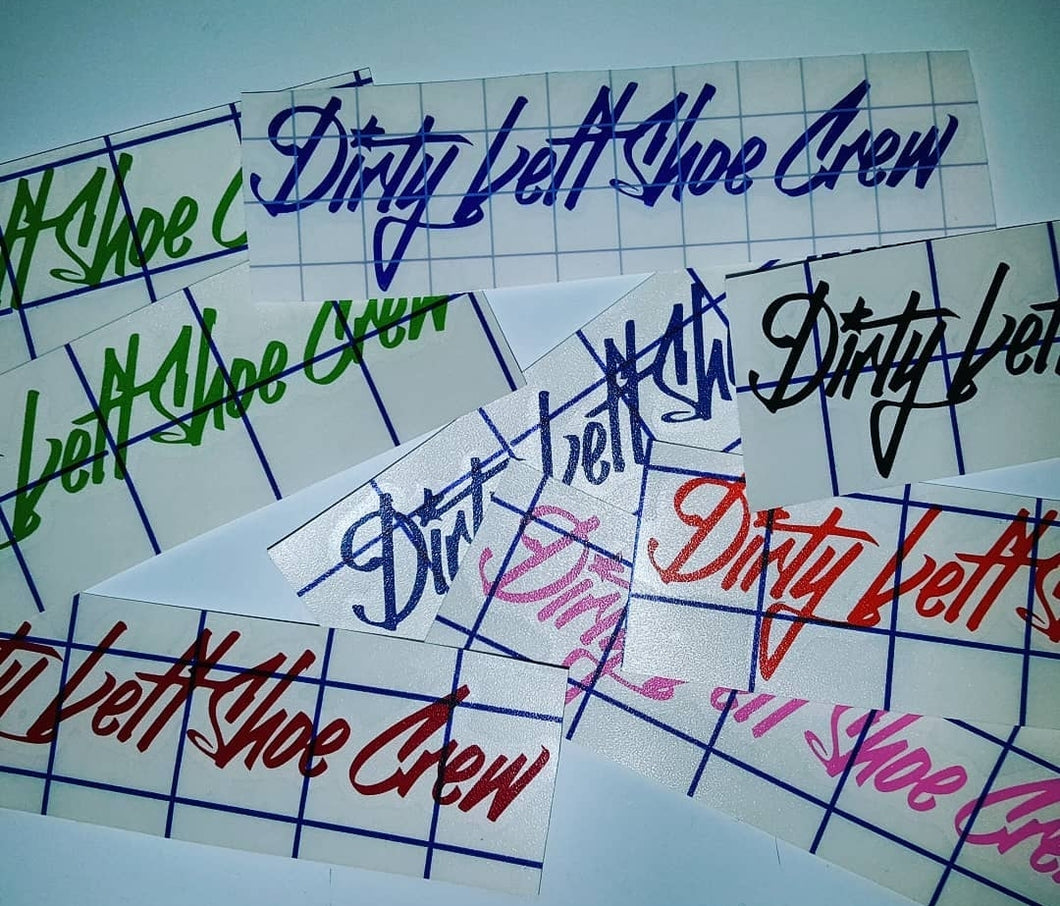 Dirty Left Shoe Crew
ft Shoe C
Left Shoe Crew
Dirty Left
Left Sh
Dirt
Dirty
Dirty Left S
ty Left Shoe Crew
Shoe Cre